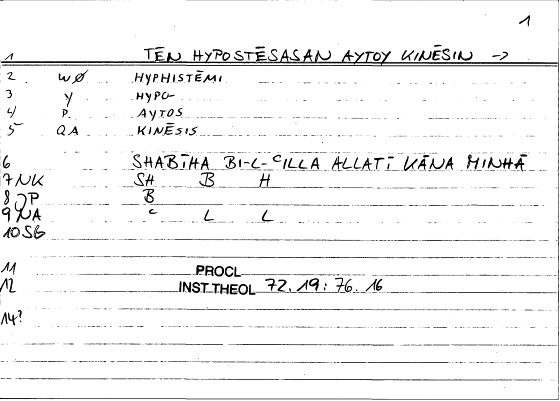 1
1 TĒN HYPOSTĒSASAN AYTOY KINĒSIN →
2 WØ HYPHISTĒMI
3 Y HYPO-
4 P. AYTOS
5 QA KINĒSIS
6 SHABĪHA BI-L-ʿILLA ALLATĪ KĀNA MINHĀ
7 NK SH B H
8 JP B
9 NA ʿ L L
10 SG
11 PROCL
12 INST.THEOL 72.19: 76.16
14?